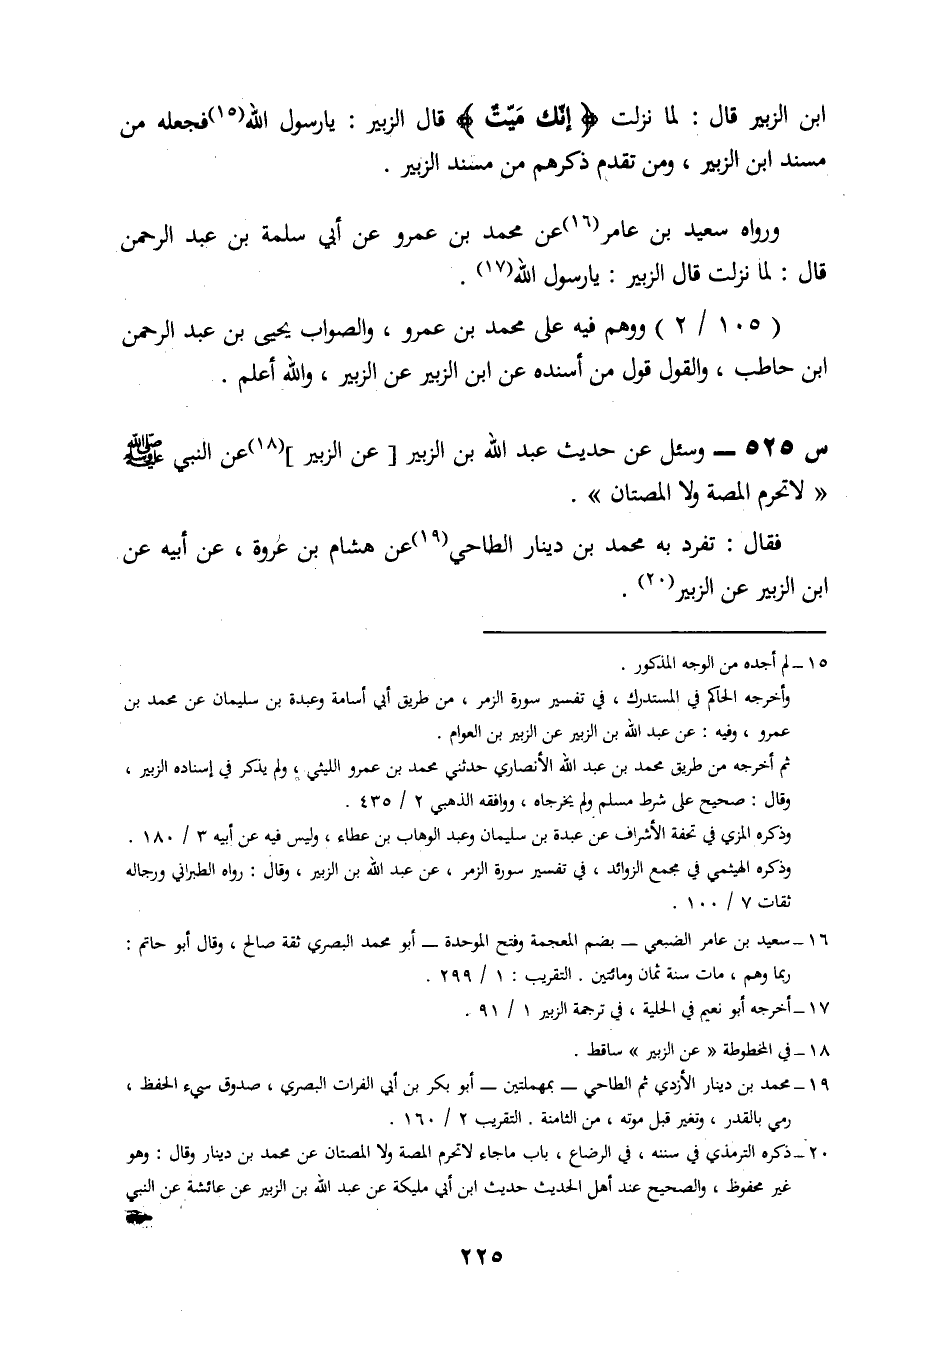 ابن الزبير قال : لما نزلت ﴿ إنّك مَيّتٌ ﴾ قال الزبير : يارسول الله(١٥)فجعله من
مسند ابن الزبير ، ومن تقدم ذكرهم من مسند الزبير .
ورواه سعيد بن عامر(١٦)عن محمد بن عمرو عن أبي سلمة بن عبد الرحمن
قال : لما نزلت قال الزبير : يارسول الله(١٧) .
( ١٠٥ / ٢ ) ووهم فيه على محمد بن عمرو ، والصواب يحيى بن عبد الرحمن
ابن حاطب ، والقول قول من أسنده عن ابن الزبير عن الزبير ، والله أعلم .
س ٥٢٥ ـ وسئل عن حديث عبد الله بن الزبير [ عن الزبير ](١٨)عن النبي ﷺ
« لاتحرم المصة ولا المصتان » .
فقال : تفرد به محمد بن دينار الطاحي(١٩)عن هشام بن عروة ، عن أبيه عن
ابن الزبير عن الزبير(٢٠) .
١٥ـ لم أجده من الوجه المذكور .
وأخرجه الحاكم في المستدرك ، في تفسير سورة الزمر ، من طريق أبي أسامة وعبدة بن سليمان عن محمد بن
عمرو ، وفيه : عن عبد الله بن الزبير عن الزبير بن العوام .
ثم أخرجه من طريق محمد بن عبد الله الأنصاري حدثني محمد بن عمرو الليثي ، ولم يذكر في إسناده الزبير ،
وقال : صحيح على شرط مسلم ولم يخرجاه ، ووافقه الذهبي ٢ / ٤٣٥ .
وذكره المزي في تحفة الأشراف عن عبدة بن سليمان وعبد الوهاب بن عطاء ، وليس فيه عن أبيه ٣ / ١٨٠ .
وذكره الهيثمي في مجمع الزوائد ، في تفسير سورة الزمر ، عن عبد الله بن الزبير ، وقال : رواه الطبراني ورجاله
ثقات ٧ / ١٠٠ .
١٦ـ سعيد بن عامر الضبعي ـ بضم المعجمة وفتح الموحدة ـ أبو محمد البصري ثقة صالح ، وقال أبو حاتم :
ربما وهم ، مات سنة ثمان ومائتين . التقريب : ١ / ٢٩٩ .
١٧ـ أخرجه أبو نعيم في الحلية ، في ترجمة الزبير ١ / ٩١ .
١٨ـ في المخطوطة « عن الزبير » ساقط .
١٩ـ محمد بن دينار الأزدي ثم الطاحي ـ بمهملتين ـ أبو بكر بن أبي الفرات البصري ، صدوق سيء الحفظ ،
رمي بالقدر ، وتغير قبل موته ، من الثامنة . التقريب ٢ / ١٦٠ .
٢٠ـ ذكره الترمذي في سننه ، في الرضاع ، باب ماجاء لاتحرم المصة ولا المصتان عن محمد بن دينار وقال : وهو
غير محفوظ ، والصحيح عند أهل الحديث حديث ابن أبي مليكة عن عبد الله بن الزبير عن عائشة عن النبي
٢٢٥